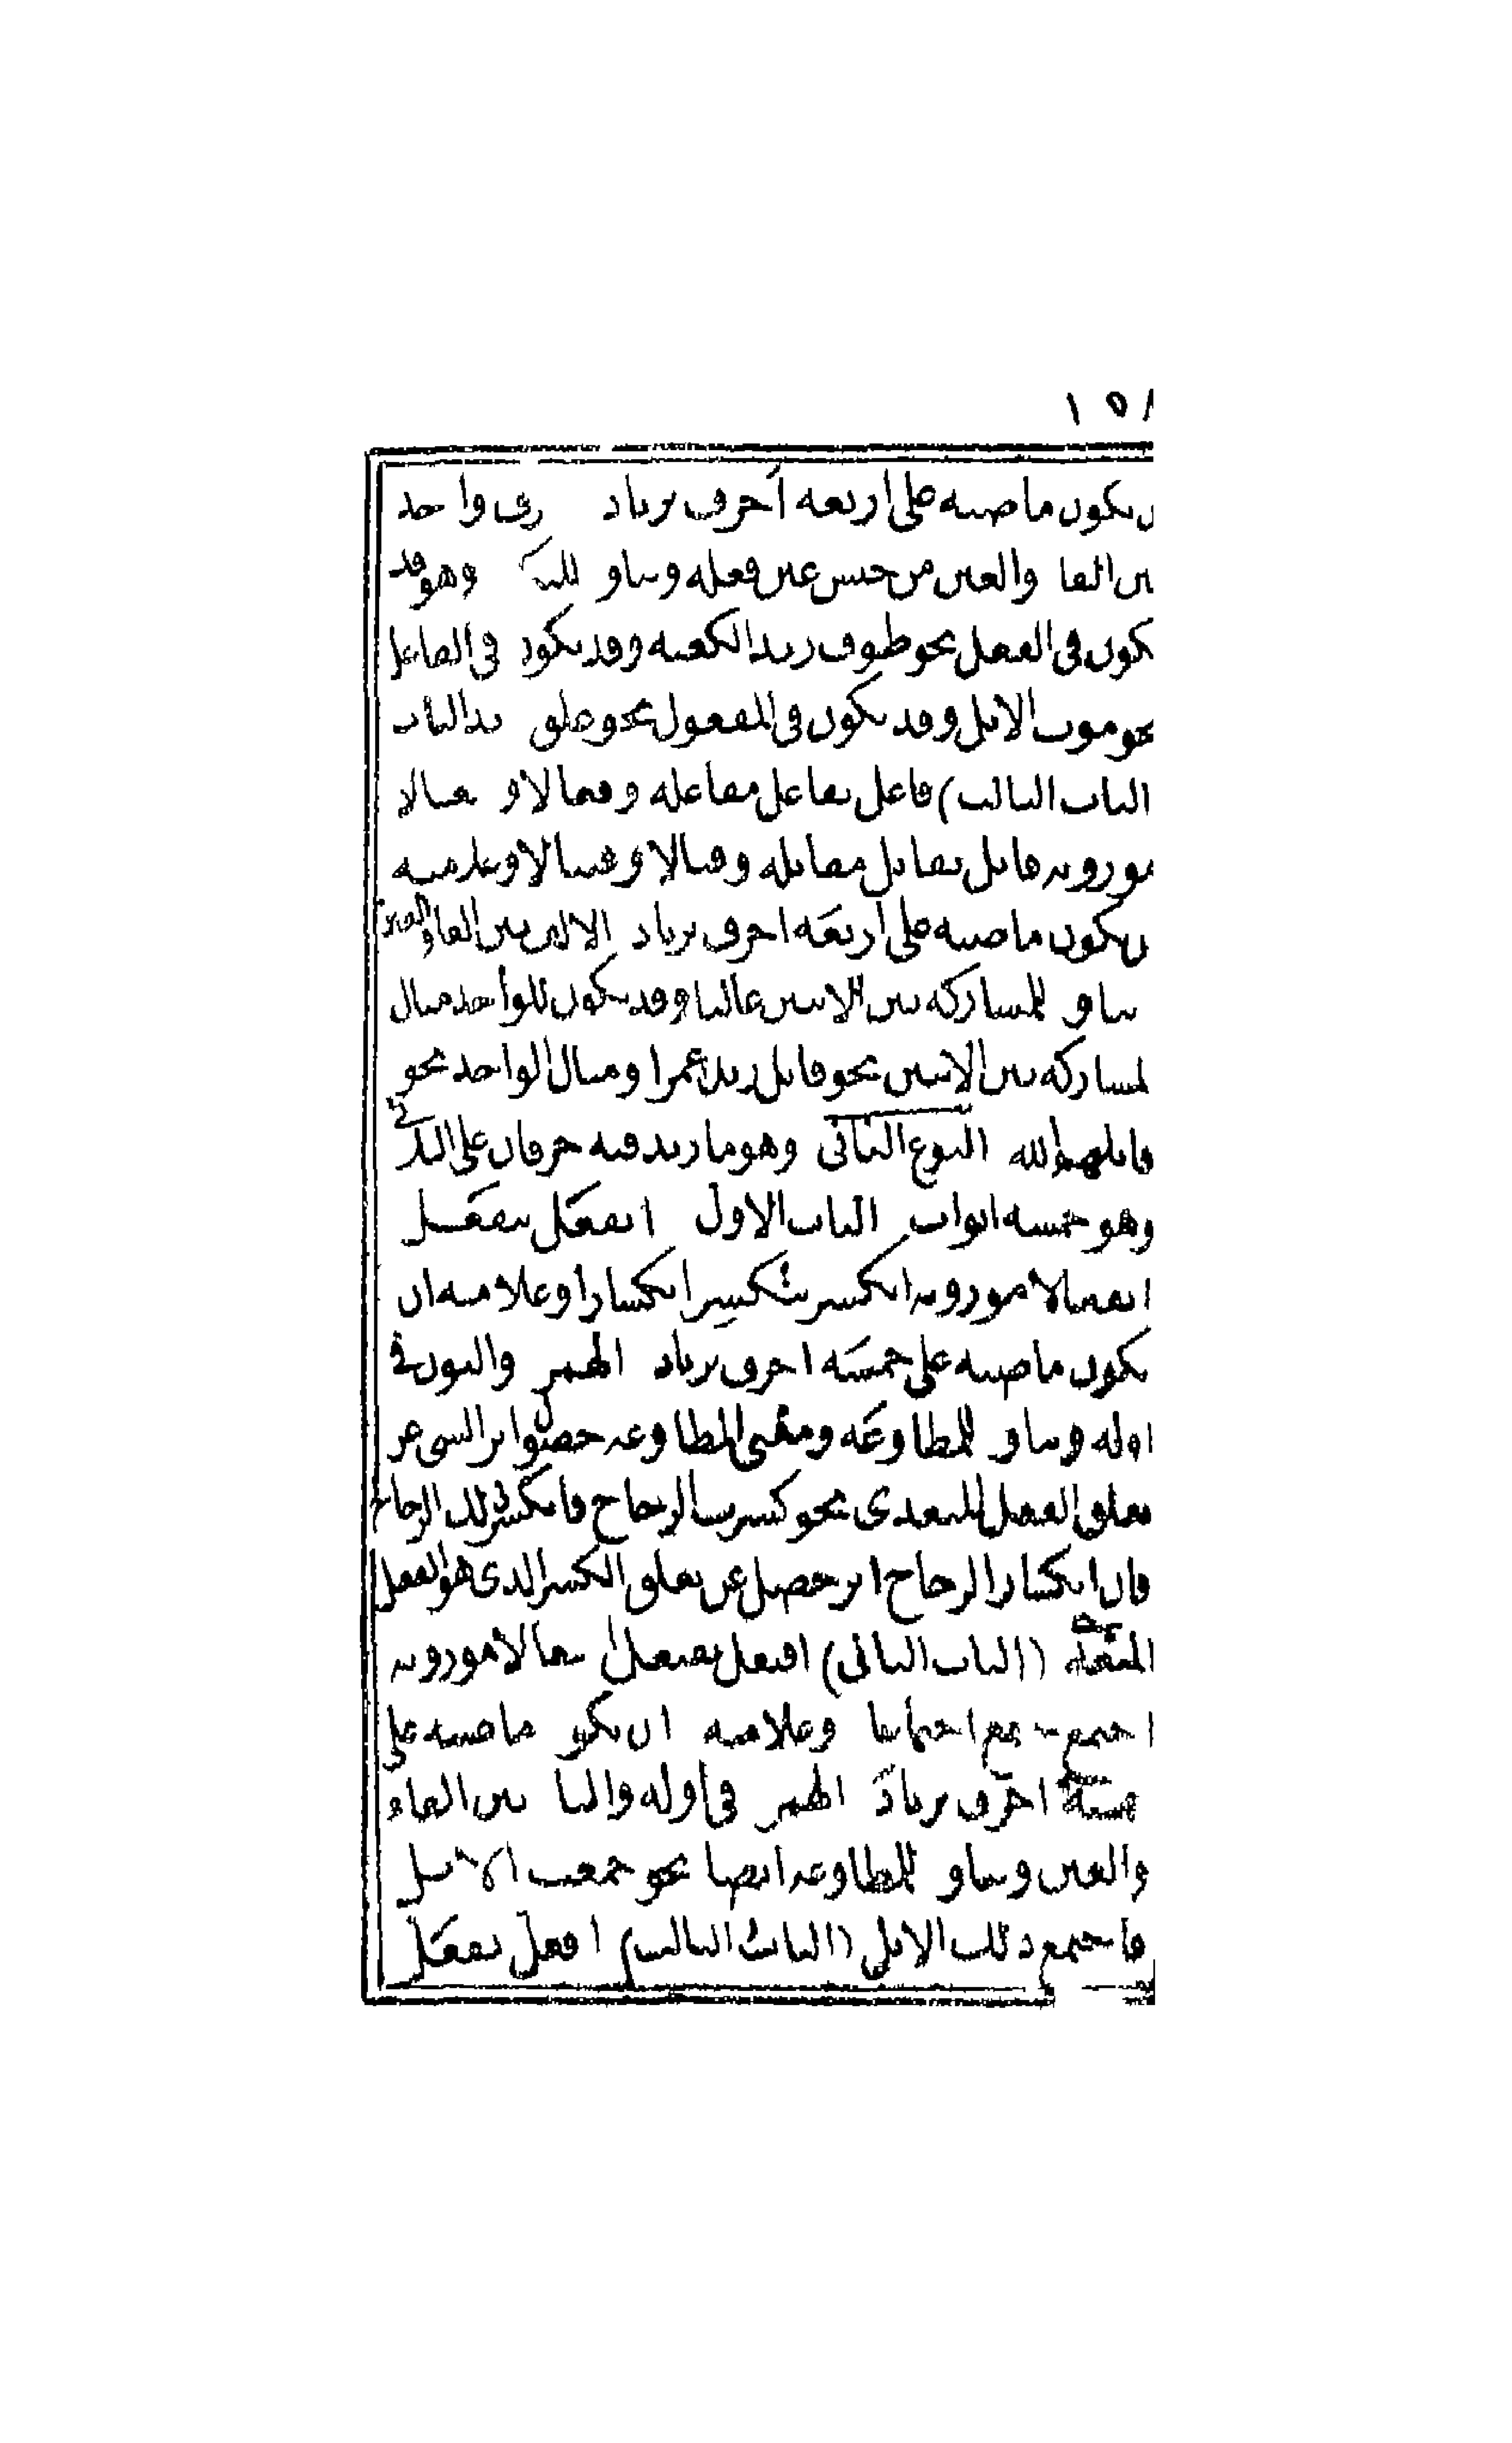 ١٥٨
ن يكون ماضيه على اربعة احرف بزيادة حرف واحد
بين الفاء والعين من جنس عين فعله وبناؤه للتكثير وهو قد
يكون فى الفعل نحو طوف زيد الكعبة وقد يكون فى الفاعل
نحو موت الابل وقد يكون فى المفعول نحو غلق زيد الباب
الباب الثالث) فاعل يفاعل مفاعلة وفعالا وفيعالا
موزونه قاتل يقاتل مقاتلة وقتالا وقيتالا وعلامته
ن يكون ماضيه على اربعة احرف بزيادة الالف بين الفاء والعين
بناؤه للمشاركة بين الاثنين غالبا وقد يكون للواحد مثال
لمشاركة بين الاثنين نحو قاتل زيد عمرا ومثال الواحد نحو
قاتلهم الله النوع الثانى وهو ما زيد فيه حرفان على الثلاثى
وهو خمسة ابواب الباب الاول انفعل ينفعل
انفعالا موزونه انكسر ينكسر انكسارا وعلامته ان
يكون ماضيه على خمسة احرف بزيادة الهمزة والنون فى
اوله وبناؤه للمطاوعة ومعنى المطاوعة حصول اثر الشىء عن
تعلق الفعل المتعدى نحو كسرت الزجاج فانكسر ذلك الزجاج
فان انكسار الزجاج اثر حصل عن تعلق الكسر الذى هو الفعل
(الباب الثانى) افتعل يفتعل افتعالا موزونه
اجتمع يجتمع اجتماعا وعلامته ان يكون ماضيه على
خمسة احرف بزيادة الهمزة فى اوله والتاء بين الفاء
والعين وبناؤه للمطاوعة ايضا نحو جمعت الابل
فاجتمع ذلك الابل (الباب الثالث) افعل يفعل